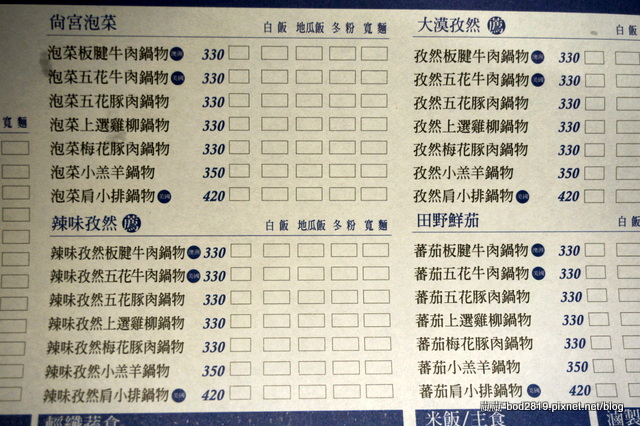 尙宮泡菜 白飯 地瓜飯 冬粉 寬麵
泡菜板腱牛肉鍋物 澳洲 330
泡菜五花牛肉鍋物 美國 330
泡菜五花豚肉鍋物 330
泡菜上選雞柳鍋物 330
泡菜梅花豚肉鍋物 330
泡菜小羔羊鍋物 350
泡菜肩小排鍋物 美國 420
辣味孜然 薦 白飯 地瓜飯 冬粉 寬麵
辣味孜然板腱牛肉鍋物 澳洲 330
辣味孜然五花牛肉鍋物 美國 330
辣味孜然五花豚肉鍋物 330
辣味孜然上選雞柳鍋物 330
辣味孜然梅花豚肉鍋物 330
辣味孜然小羔羊鍋物 350
辣味孜然肩小排鍋物 美國 420
輕纖蔬食
大漠孜然 薦 白飯
孜然板腱牛肉鍋物 澳洲 330
孜然五花牛肉鍋物 美國 330
孜然五花豚肉鍋物 330
孜然上選雞柳鍋物 330
孜然梅花豚肉鍋物 330
孜然小羔羊鍋物 350
孜然肩小排鍋物 美國 420
田野鮮茄 白
蕃茄板腱牛肉鍋物 澳洲 330
蕃茄五花牛肉鍋物 美國 330
蕃茄五花豚肉鍋物 330
蕃茄上選雞柳鍋物 330
蕃茄梅花豚肉鍋物 330
蕃茄小羔羊鍋物 350
蕃茄肩小排鍋物 美國 420
米飯/主食
寬麵
bod2819.pixnet.net/blog